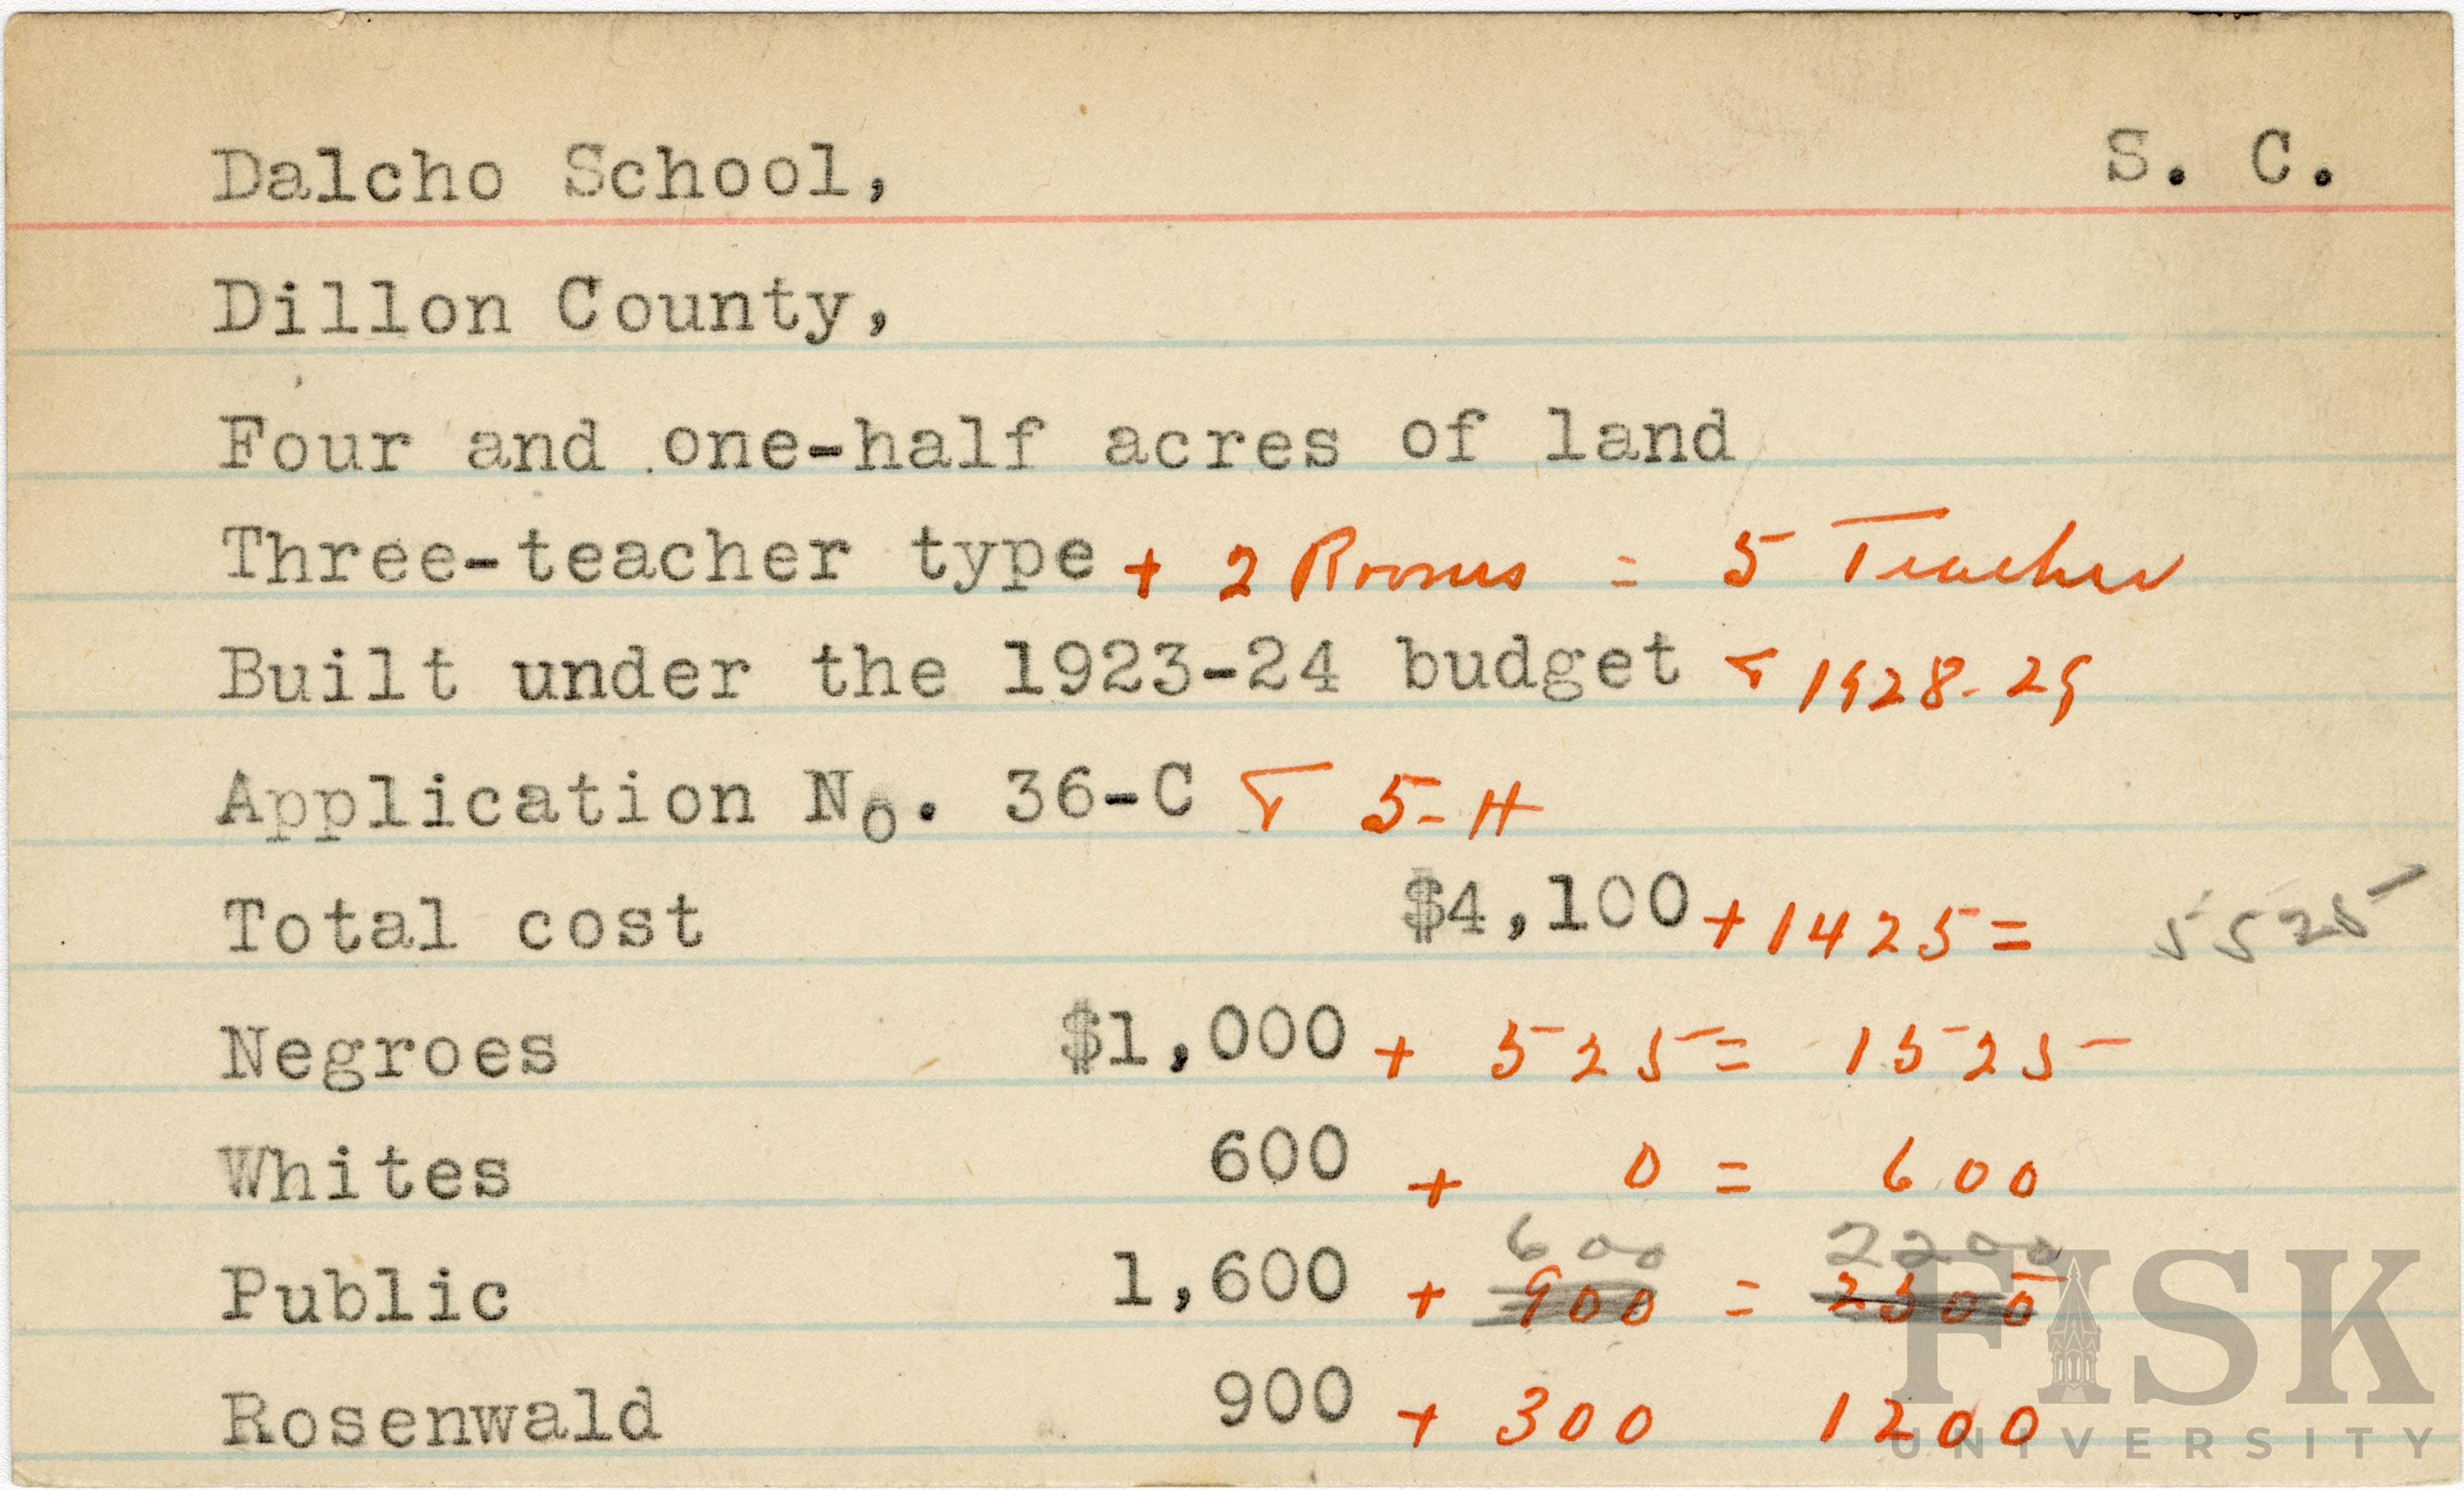 Dalcho School, S. C.
Dillon County,
Four and one-half acres of land
Three-teacher type + 2 Rooms = 5 Teacher
Built under the 1923-24 budget & 1928-29
Application No. 36-C & 5-H
Total cost $4,100 + 1425 = 5525
Negroes $1,000 + 525 = 1525
Whites 600 + 0 = 600
600 2200
Public 1,600 + 900 = 2500
Rosenwald 900 + 300 1200
FISK
UNIVERSITY